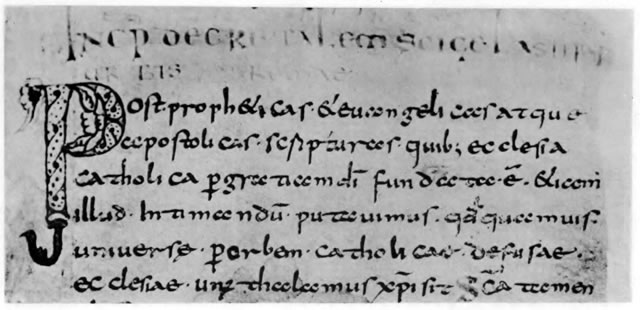 INCP DECRETALEM SCI GELASII PP
URBIS ROMAE
Post propheticas & euangelicas atque
apostolicas · scripturas · quib; ecclesia
catholica p̲ gratiam dī fundata · ē · &iam
illud · intimandū · putauimus · qđ quamuis ·
uniuersę · per orbem · catholicae · defusae ·
ecclesiae · unus thalamus xp̄i sit · sc̄a tamen